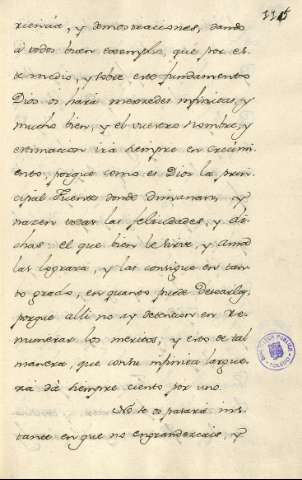 115
riencia, y demostraciones, dando
à todos buen exemplo, que por es-
te medio, y sobre este fundamento
Dios os harà mercedes infinitas, y
mucho bien, y el vuestro nombre, y
estimacion irà siempre en crecimi-
ento, porque como es Dios la prin-
cipal Fuente donde dimanan, y
nazen todas las felicidades, y di-
chas: el que bien le sirve, y ama
las lograra, y las consigue en tan-
to grado, en quanto puede Desearlas,
porque alli no ay detencion en re-
munerar los meritos, y esto de tal
manera, que con su infinita largue-
za dà siempre ciento por uno.
No se os passarà ins-
tante en que no engrandezcais, y